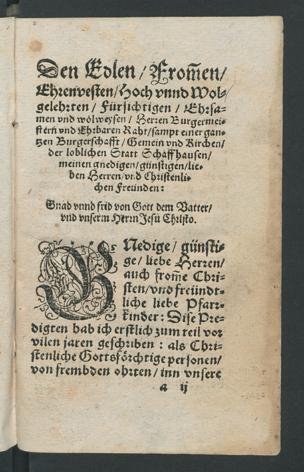 Den Edlen / From̃en /
Ehrenvesten / Hoch vnnd Wol-
gelehrten / Fürsichtigen / Ehrsa-
men vnd wolweysen / Herren Burgermei-
stern vnd Ehrbaren Raht / sampt einer gan-
tzen Burgerschafft / Gemein vnd Kirchen /
der loblichen Statt Schaffhausen /
meinen gnedigen / günstigen / lie-
ben Herren / vnd Christenli-
chen Freünden :
Gnad vnnd frid von Gott dem Vatter /
vnd vnserm Herrn Jesu Christo.
GNedige / günsti-
ge / liebe Herren /
auch from̃e Chri-
sten / vnd freündt-
liche liebe Pfarr-
kinder : Dise Pre-
digten hab ich erstlich zum teil vor
vilen jaren geschriben : als Chri-
stenliche Gottsförchtige personen /
von frembden ohrten / inn vnsere
a ij